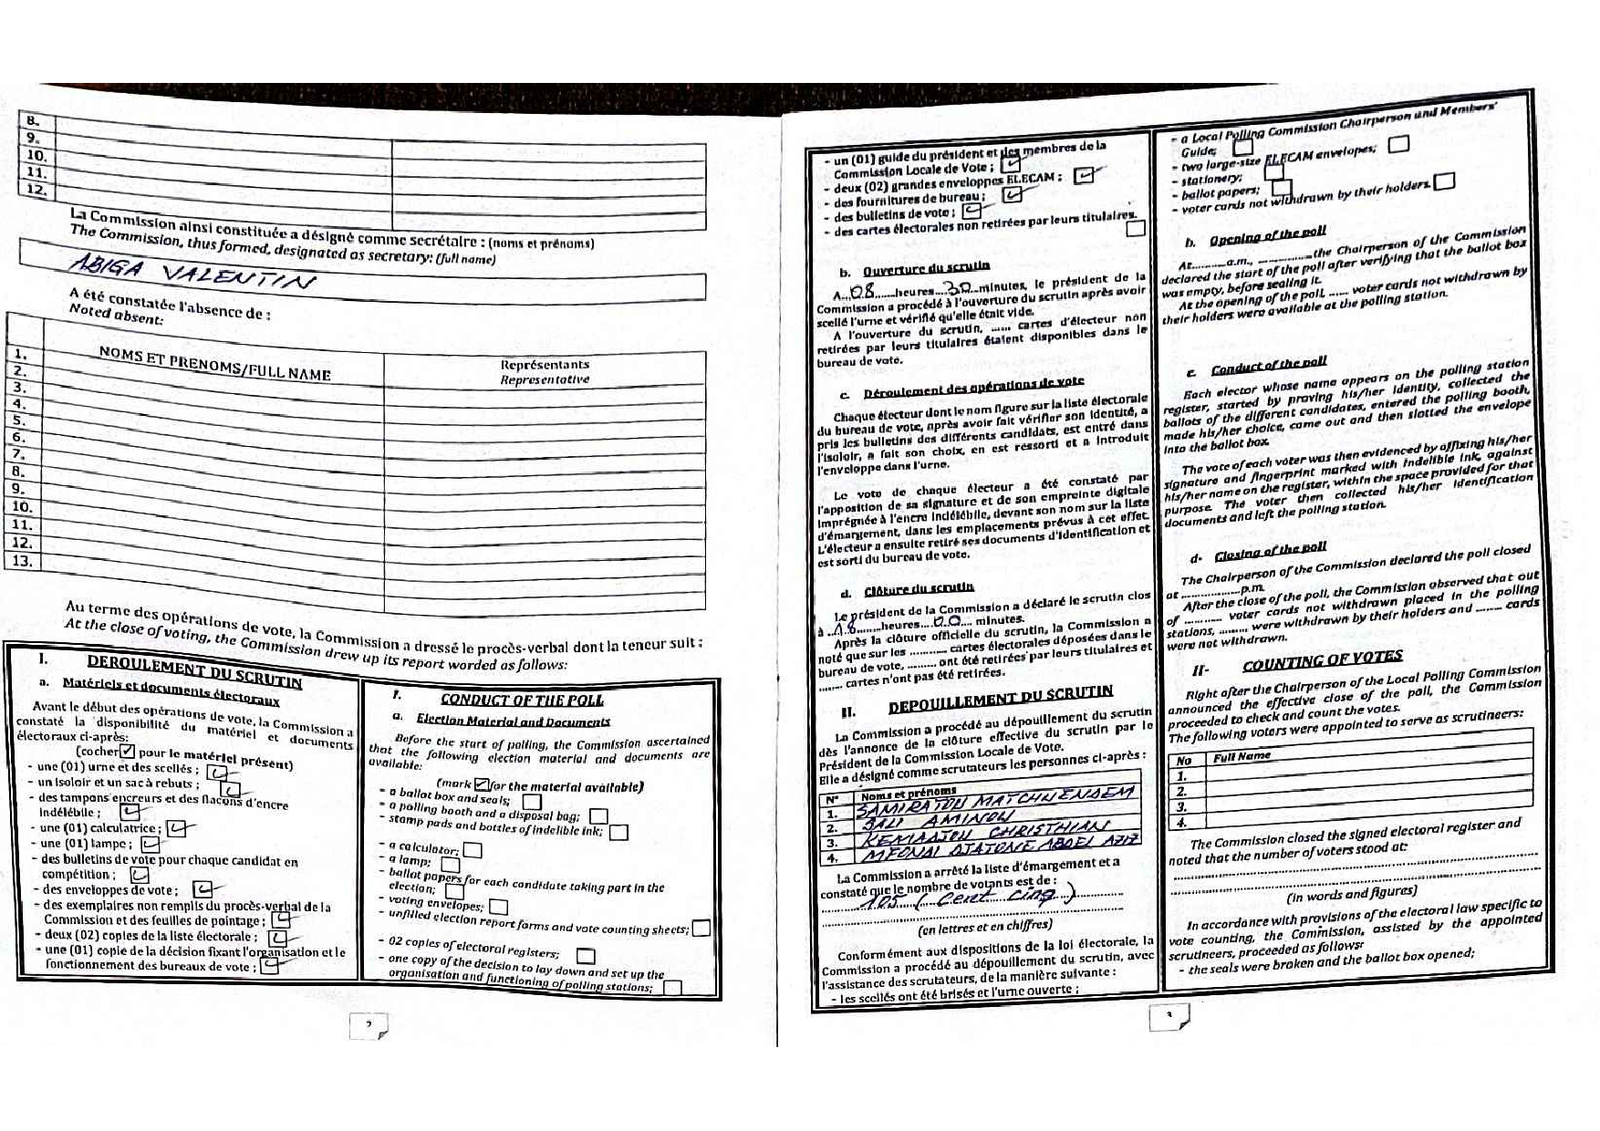 8.
9.
10.
11.
12.
La Commission ainsi constituée a désigné comme secrétaire : (noms et prénoms)
The Commission, thus formed, designated as secretary: (full name)
ABIGA VALENTIN
A été constatée l'absence de :
Noted absent:
NOMS ET PRENOMS/FULL NAME
Représentants
Representative
1.
2.
3.
4.
5.
6.
7.
8.
9.
10.
11.
12.
13.
Au terme des opérations de vote, la Commission a dressé le procès-verbal dont la teneur suit :
At the close of voting, the Commission drew up its report worded as follows:
I. DEROULEMENT DU SCRUTIN
a. Matériels et documents électoraux
Avant le début des opérations de vote, la Commission a
constaté la disponibilité du matériel et documents
électoraux ci-après:
(cocher ✓ pour le matériel présent)
- une (01) urne et des scellés ;
- un isoloir et un sac à rebuts ;
- des tampons encreurs et des flacons d'encre
indélébile ;
- une (01) calculatrice ;
- une (01) lampe ;
- des bulletins de vote pour chaque candidat en
compétition ;
- des enveloppes de vote ;
- des exemplaires non remplis du procès-verbal de la
Commission et des feuilles de pointage ;
- deux (02) copies de la liste électorale ;
- une (01) copie de la décision fixant l'organisation et le
fonctionnement des bureaux de vote ;
I. CONDUCT OF THE POLL
a. Election Material and Documents
Before the start of polling, the Commission ascertained
that the following election material and documents are
available:
(mark ✓ for the material available)
- a ballot box and seals;
- a polling booth and a disposal bag;
- stamp pads and bottles of indelible ink;
- a calculator;
- a lamp;
- ballot papers for each candidate taking part in the
election;
- voting envelopes;
- unfilled election report forms and vote counting sheets;
- 02 copies of electoral registers;
- one copy of the decision to lay down and set up the
organisation and functioning of polling stations;
2
- un (01) guide du président et des membres de la
Commission Locale de Vote ;
- deux (02) grandes enveloppes ELECAM ;
- des fournitures de bureau ;
- des bulletins de vote ;
- des cartes électorales non retirées par leurs titulaires.
b. Ouverture du scrutin
A...08......heures...30...minutes, le président de la
Commission a procédé à l'ouverture du scrutin après avoir
scellé l'urne et vérifié qu'elle était vide.
A l'ouverture du scrutin, ...... cartes d'électeur non
retirées par leurs titulaires étaient disponibles dans le
bureau de vote.
c. Déroulement des opérations de vote
Chaque électeur dont le nom figure sur la liste électorale
du bureau de vote, après avoir fait vérifier son identité, a
pris les bulletins des différents candidats, est entré dans
l'isoloir, a fait son choix, en est ressorti et a introduit
l'enveloppe dans l'urne.
Le vote de chaque électeur a été constaté par
l'apposition de sa signature et de son empreinte digitale
imprégnée à l'encre indélébile, devant son nom sur la liste
d'émargement, dans les emplacements prévus à cet effet.
L'électeur a ensuite retiré ses documents d'identification et
est sorti du bureau de vote.
d. Clôture du scrutin
Le président de la Commission a déclaré le scrutin clos
à ..18......heures...00.... minutes.
Après la clôture officielle du scrutin, la Commission a
noté que sur les ........... cartes électorales déposées dans le
bureau de vote, ......... ont été retirées par leurs titulaires et
........ cartes n'ont pas été retirées.
II. DEPOUILLEMENT DU SCRUTIN
La Commission a procédé au dépouillement du scrutin
dès l'annonce de la clôture effective du scrutin par le
Président de la Commission Locale de Vote.
Elle a désigné comme scrutateurs les personnes ci-après :
N° Noms et prénoms
1. SAMIRATOU MATCHUENDEM
2. BALI AMINOU
3. CHRISTHIAN
4. ABDEL AZIZ
La Commission a arrêté la liste d'émargement et a
constaté que le nombre de votants est de :
105 (Cent Cinq)
(en lettres et en chiffres)
Conformément aux dispositions de la loi électorale, la
Commission a procédé au dépouillement du scrutin, avec
l'assistance des scrutateurs, de la manière suivante :
- les scellés ont été brisés et l'urne ouverte ;
- a Local Polling Commission Chairperson and Members'
Guide;
- two large-size ELECAM envelopes;
- stationery;
- ballot papers;
- voter cards not withdrawn by their holders.
b. Opening of the poll
At..........a.m., ...............the Chairperson of the Commission
declared the start of the poll after verifying that the ballot box
was empty, before sealing it.
At the opening of the poll, ...... voter cards not withdrawn by
their holders were available at the polling station.
c. Conduct of the poll
Each elector whose name appears on the polling station
register, started by proving his/her identity, collected the
ballots of the different candidates, entered the polling booth,
made his/her choice, came out and then slotted the envelope
into the ballot box.
The vote of each voter was then evidenced by affixing his/her
signature and fingerprint marked with indelible ink, against
his/her name on the register, within the space provided for that
purpose. The voter then collected his/her identification
documents and left the polling station.
d- Closing of the poll
The Chairperson of the Commission declared the poll closed
at ..................p.m.
After the close of the poll, the Commission observed that out
of .......... voter cards not withdrawn placed in the polling
stations, ......... were withdrawn by their holders and ........ cards
were not withdrawn.
II- COUNTING OF VOTES
Right after the Chairperson of the Local Polling Commission
announced the effective close of the poll, the Commission
proceeded to check and count the votes.
The following voters were appointed to serve as scrutineers:
No Full Name
1.
2.
3.
4.
The Commission closed the signed electoral register and
noted that the number of voters stood at:
(in words and figures)
In accordance with provisions of the electoral law specific to
vote counting, the Commission, assisted by the appointed
scrutineers, proceeded as follows:
- the seals were broken and the ballot box opened;
3